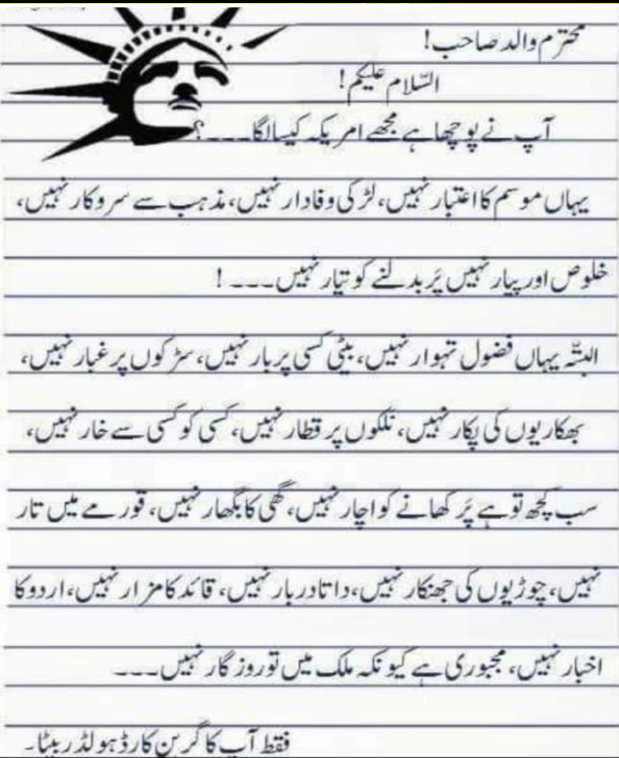 محترم والد صاحب!
السّلام علیکم!
آپ نے پوچھا ہے مجھے امریکہ کیسا لگا۔۔۔۔؟
یہاں موسم کا اعتبار نہیں، لڑکی وفادار نہیں، مذہب سے سروکار نہیں،
خلوص اور پیار نہیں پَر بدلنے کو تیّار نہیں۔۔۔۔!
البتّہ یہاں فضول تہوار نہیں، بیٹی کسی پر بار نہیں، سڑکوں پر غبار نہیں،
بھکاریوں کی پکار نہیں، نلکوں پر قطار نہیں، کسی کو کسی سے خار نہیں،
سب کچھ تو ہے پَر کھانے کو اچار نہیں، گھی کا بگھار نہیں، قورمے میں تار
نہیں، چوڑیوں کی جھنکار نہیں، داتا دربار نہیں، قائد کا مزار نہیں، اردو کا
اخبار نہیں، مجبوری ہے کیونکہ ملک میں تو روزگار نہیں۔۔۔۔
فقط آپ کا گرین کارڈ ہولڈر بیٹا۔